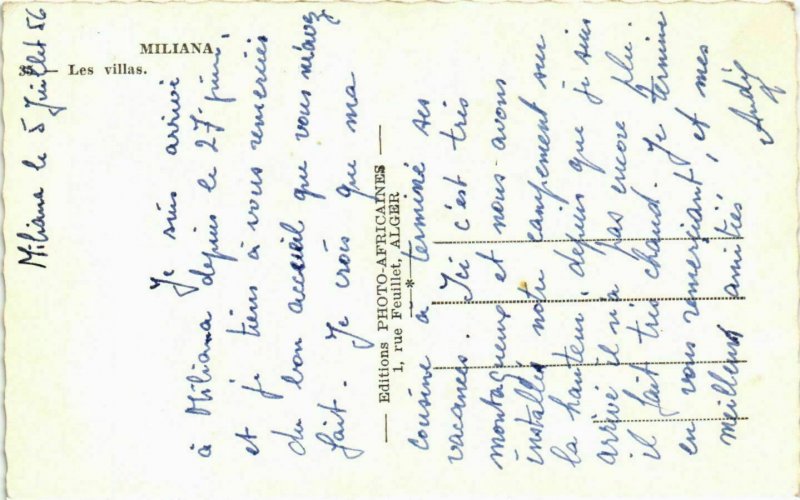 MILIANA
35 — Les villas.
Miliana le 5 Juillet 56
Je suis arrivé
à Miliana depuis le 27 juin
et je tiens à vous remercier
du bon accueil que vous m'avez
fait. Je crois que ma
Editions PHOTO-AFRICAINES
1, rue Feuillet, ALGER
*
cousine a terminé ses
vacances. Ici c'est très
montagneux et nous avons
installés notre campement sur
la hauteur, depuis que je suis
arrivé il n'a pas encore plu.
il fait très chaud. Je termine
en vous remerciant, et mes
meilleurs amitiés,
André